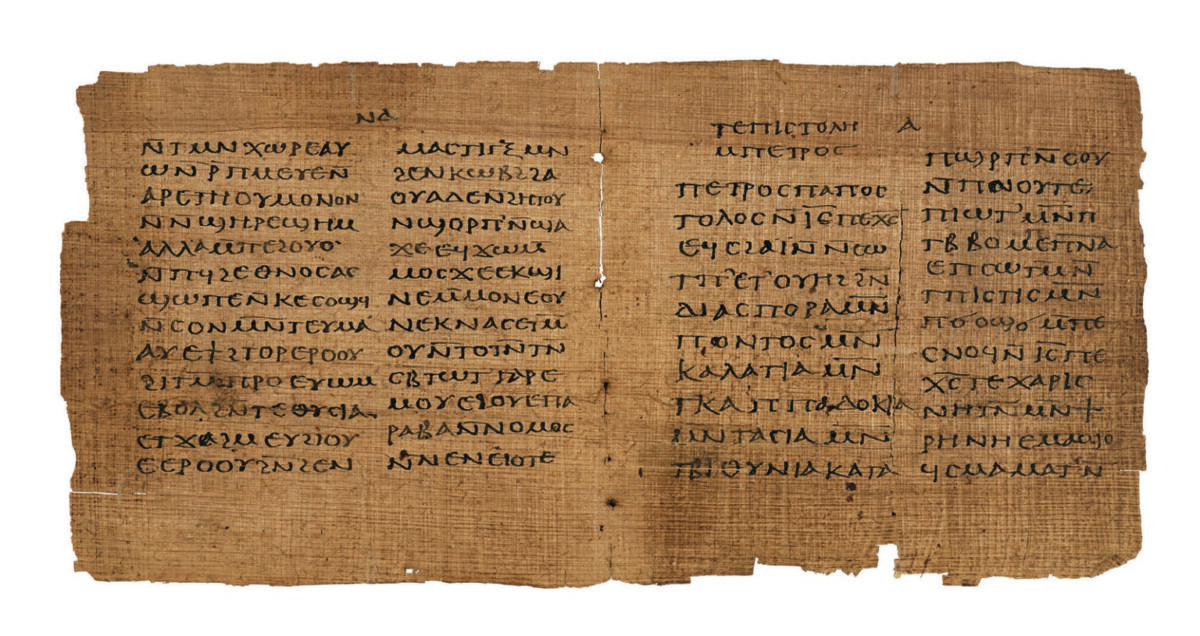 ⲛⲁ
ⲛ̄ⲧⲙⲛⲭⲱⲣⲉⲁⲩ
ⲱⲛ̄ⲣⲡⲙⲉⲩⲉⲛ̄
ⲁⲣⲉⲧⲏⲟⲩⲙⲟⲛⲟⲛ
ⲛ̄ⲛ̄ϣⲏⲣⲉϣⲏⲙ
ⲁⲗⲗⲁⲙⲡⲉϩⲟⲩⲟ
ⲛ̄ⲡϥϩⲉⲑⲛⲟⲥⲁⲥ
ϣⲱⲡⲉⲛ̄ⲕⲉⲥⲟϣϥ
ⲛ̄ⲥⲟⲛⲙⲛ̄ⲧⲉⲩⲙⲁ
ⲁⲩⲉϯϩⲧⲟⲣⲉⲣⲟⲟⲩ
ϩⲓⲧⲙ̄ⲡⲣⲟⲉⲩⲱⲙ
ⲉⲃⲟⲗϩⲛ̄ⲧⲉⲑⲩⲥⲓⲁ
ⲉⲧϫⲁϩⲙⲉⲩϩⲓⲟⲩ
ⲉⲉⲣⲟⲟⲩϩⲛ̄ϩⲉⲛ
ⲙⲁⲥⲧⲓⲅⲝⲙⲛ
ϩⲉⲛⲕⲱⲃϩϩⲁ
ⲟⲩⲁⲇⲉⲛ̄ϩⲏⲧⲟⲩ
ⲛϣⲟⲣⲡ'ⲛ̄ϣⲁ
ϫⲉⲉϥϫⲱⲙ̄
ⲙⲟⲥϫⲉⲉⲕϣⲓ
ⲛⲉⲙ̄ⲙⲟⲛⲉⲟⲩ
ⲛⲉⲕⲛⲁⲥⲉⲧⲙ̄
ⲟⲩⲛ̄ⲧⲟⲧⲛ̄ⲧⲛ
ⲥⲃⲧⲱⲧⲅⲁⲣⲉ
ⲙⲟⲩⲉϩⲟⲩⲉⲡⲁ
ⲣⲁⲃⲁⲛⲛⲟⲙⲟⲥ
ⲛ̄ⲛⲉⲛⲉⲓⲟⲧⲉ
ⲧⲉⲡⲓⲥⲧⲟⲗⲏ ⲁ
ⲙⲡⲉⲧⲣⲟⲥ
ⲡⲉⲧⲣⲟⲥⲡⲁⲡⲟⲥ
ⲧⲟⲗⲟⲥⲛ̄ⲓⲉ̄ⲡⲉⲭⲥ̄
ⲉϥⲥϩⲁⲓⲛ̄ⲛⲥⲱ
ⲧⲡ'ⲉⲧ'ⲟⲩⲏϩϩⲛ̄
ⲇⲓⲁⲥⲡⲟⲣⲁⲙⲛ̄
ⲡⲟⲛⲧⲟⲥⲙⲛ̄
ⲕⲁⲗⲁⲧⲓⲁⲙⲛ̄
ⲧⲕⲁⲡⲡⲁⲇⲟⲕⲓⲁ
ⲙⲛⲧⲁⲥⲓⲁⲙⲛ̄
ⲧⲃⲓⲑⲩⲛⲓⲁⲕⲁⲧⲁ
ⲡϣⲣⲡⲛ̄ⲥⲟⲩ
ⲛ̄ⲡⲛⲟⲩⲧⲉ
ⲡⲓⲱⲧ'ⲙⲛ̄ⲡ
ⲧⲃⲃⲟⲙⲡⲉⲡ̄ⲛ̄ⲁ
ⲉⲡⲥⲱⲧⲙⲛ̄
ⲧⲡⲓⲥⲧⲓⲥⲙⲛ̄
ⲡϭⲟϣϭⲙ̄ⲡⲉ
ⲥⲛⲟϥⲛ̄ⲓⲥ̄ⲡⲉ
ⲭⲥ̄ⲧⲉⲭⲁⲣⲓⲥ
ⲛⲏⲧⲛ̄ⲙⲛ̄ϯ
ⲣⲏⲛⲏⲉⲙⲁϣⲟ
ϥⲥⲙⲁⲙⲁⲧ'ⲛ